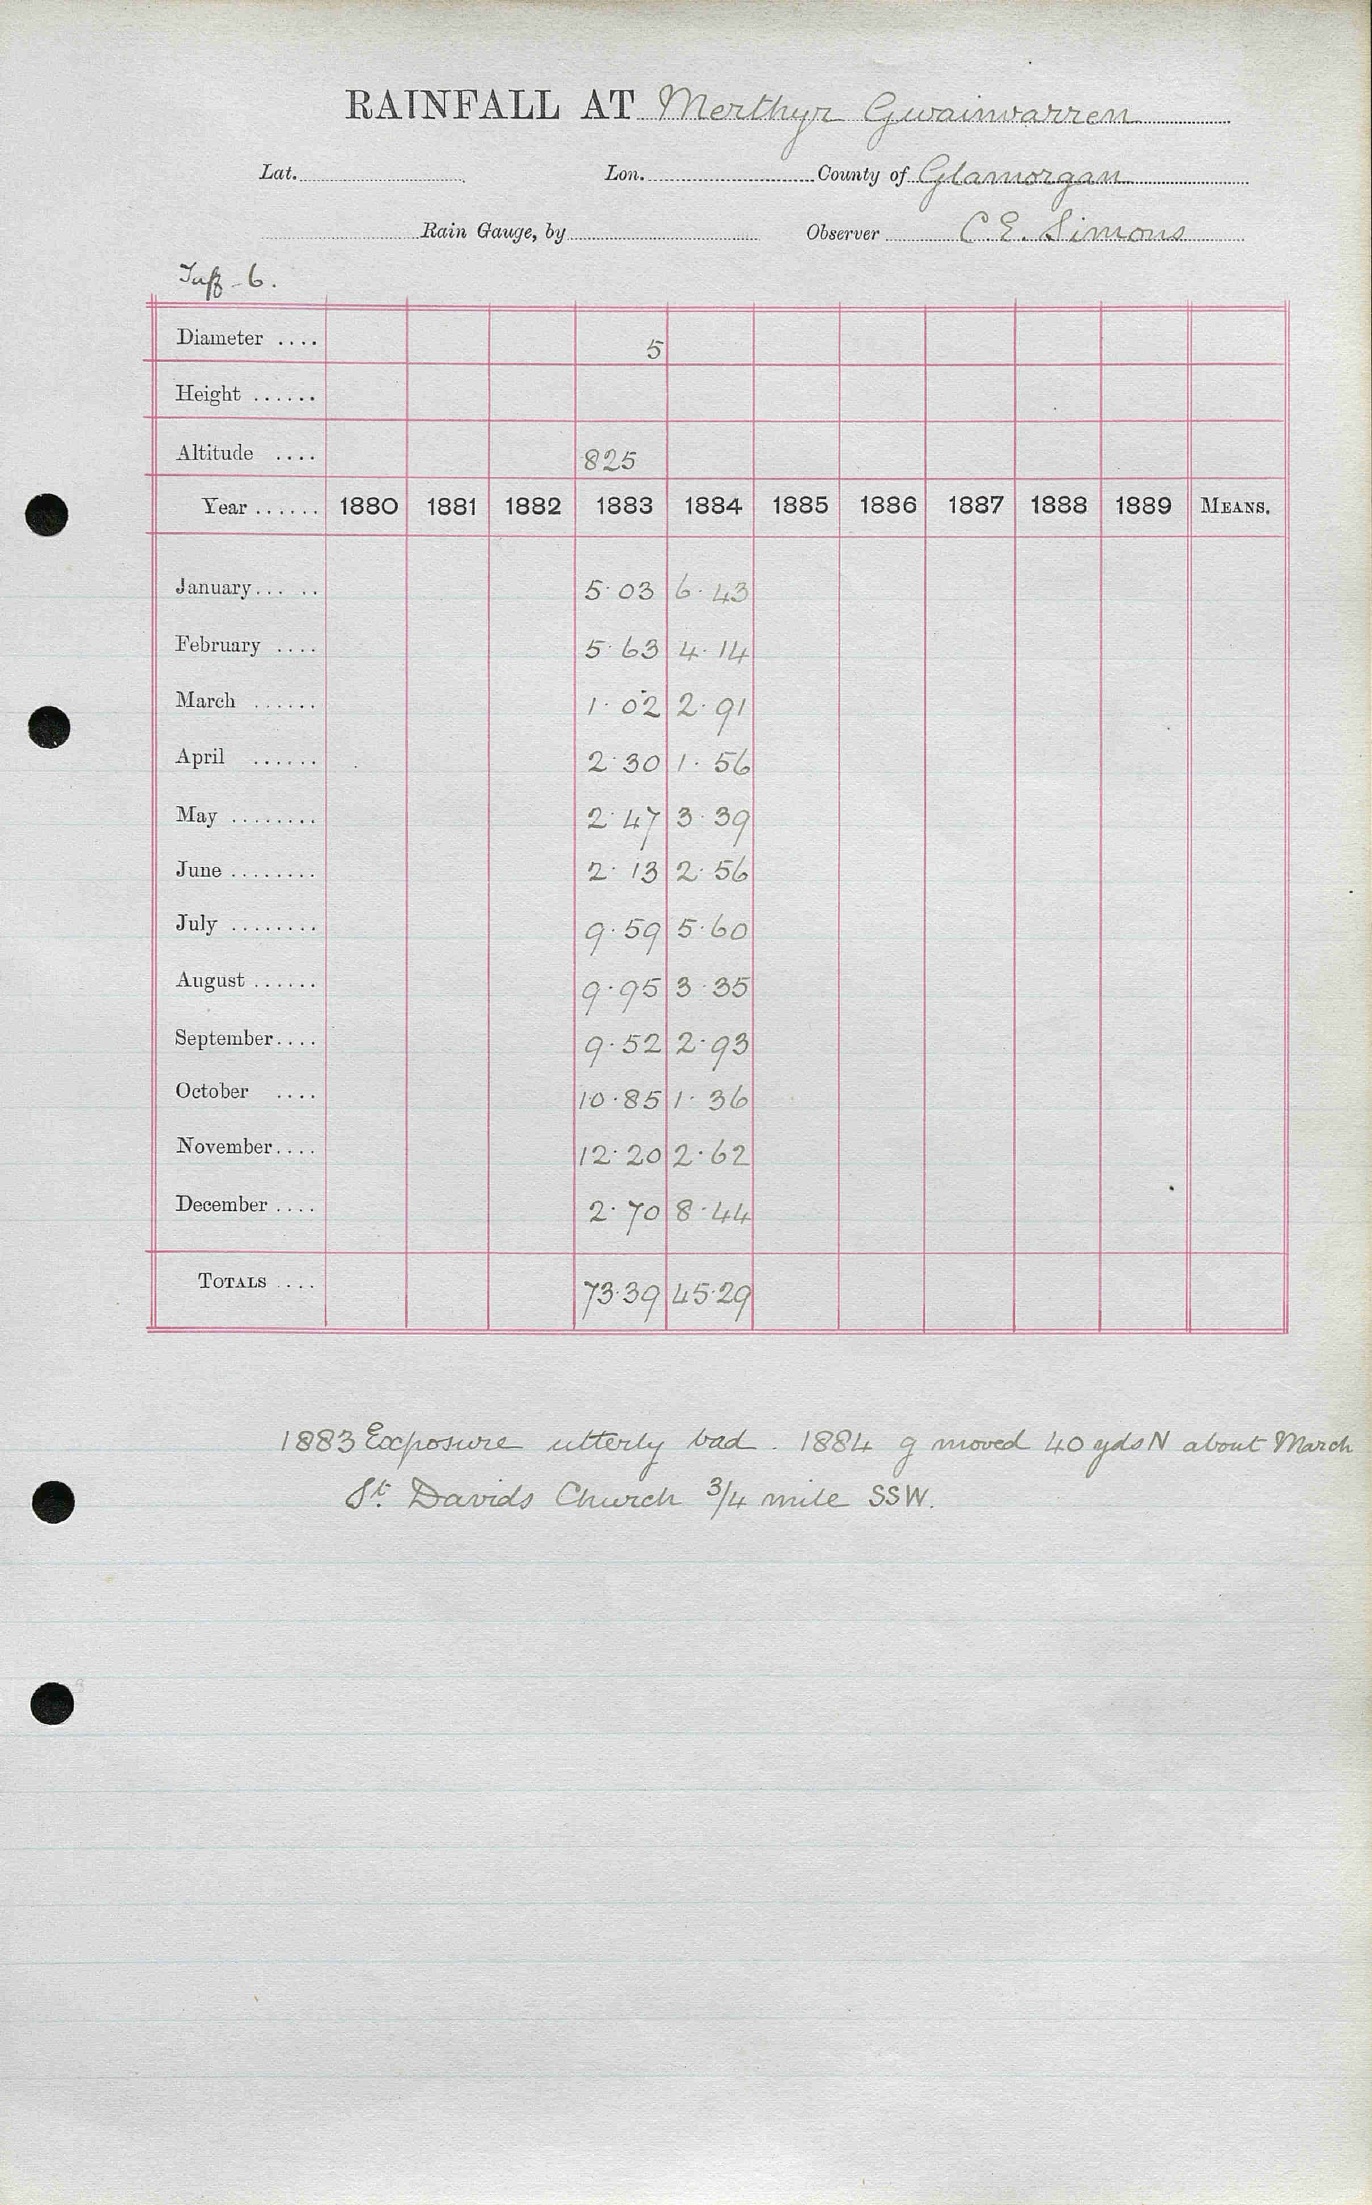 RAINFALL AT Merthyr Gwainwarren
Lat. Lon. County of Glamorgan
Rain Gauge, by Observer C.E. Simons
Taff 6.
Diameter .... 5
Height ......
Altitude .... 825
Year ...... 1880 1881 1882 1883 1884 1885 1886 1887 1888 1889 MEANS.
January... .. 5.03 6.43
February .... 5.63 4.14
March ...... 1.02 2.91
April ...... 2.30 1.56
May ........ 2.47 3.39
June ........ 2.13 2.56
July ........ 9.59 5.60
August ...... 9.95 3.35
September.... 9.52 2.93
October .... 10.85 1.36
November.... 12.20 2.62
December .... 2.70 8.44
TOTALS .... 73.39 45.29
1883 Exposure utterly bad. 1884 g moved 40 yds N about March
St. Davids Church 3/4 mile SSW.